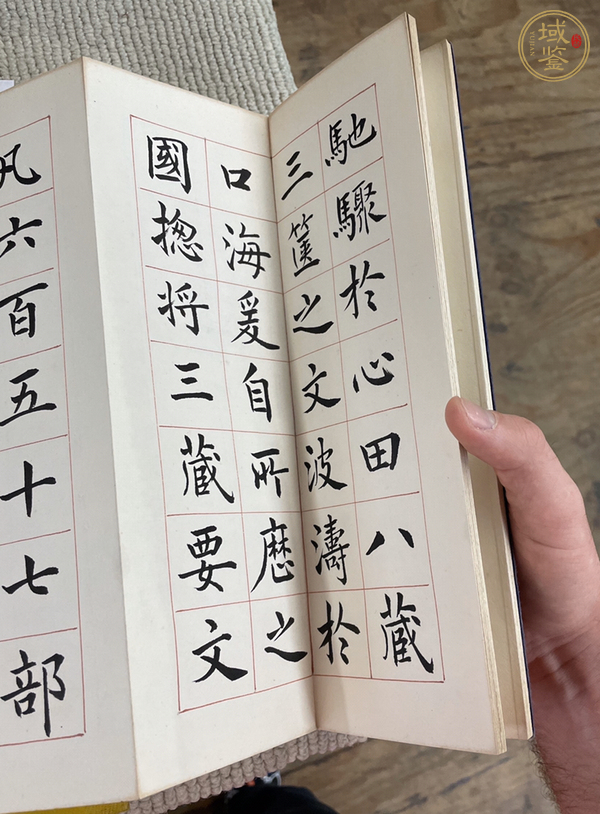 馳驟扵心田八藏
三篋之文波濤扵
口海爰自所歷之
國揔将三藏要文
凡六百五十七部
域鑒
YUJIAN